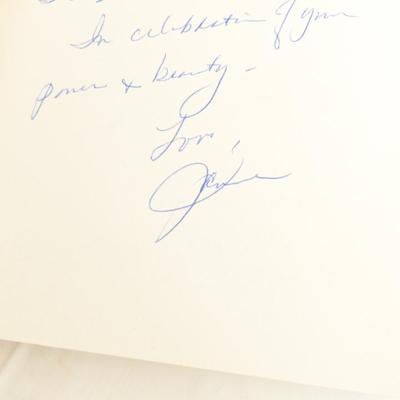 In celebration of your
power & beauty -
Love,